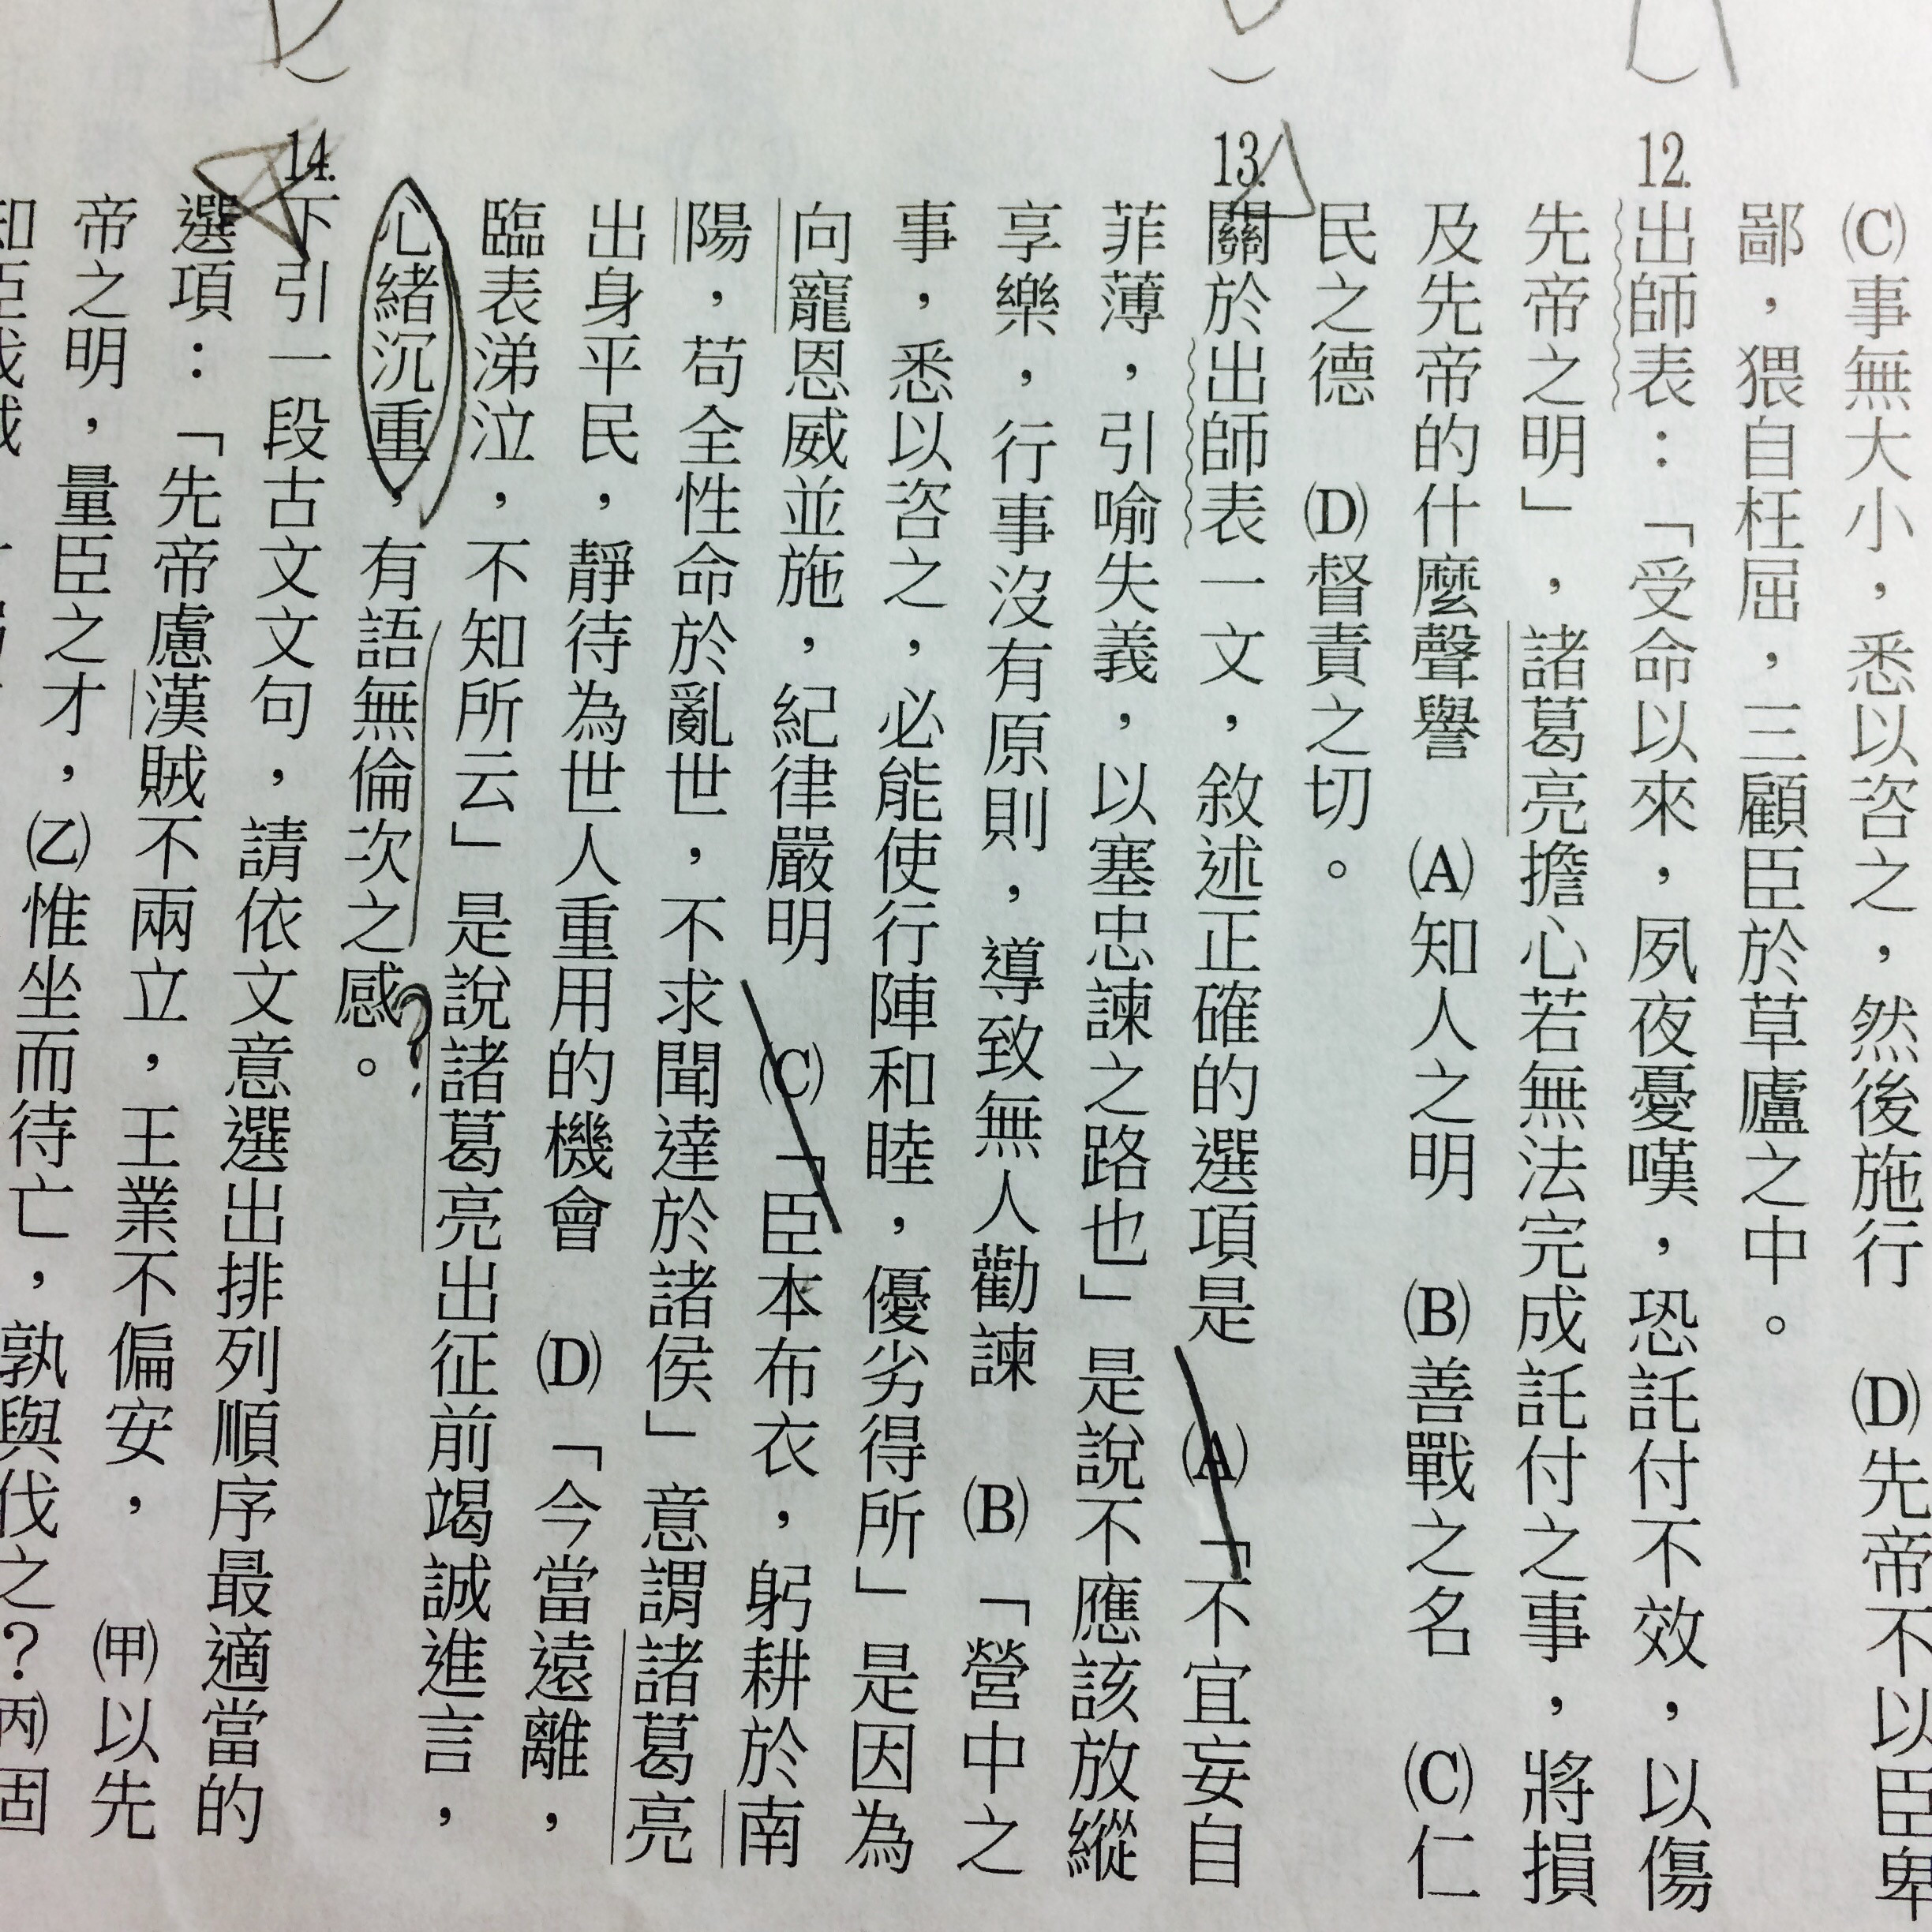 (C)事無大小，悉以咨之，然後施行　(D)先帝不以臣卑
鄙，猥自枉屈，三顧臣於草廬之中。
12.出師表：「受命以來，夙夜憂嘆，恐託付不效，以傷
先帝之明」，諸葛亮擔心若無法完成託付之事，將損
及先帝的什麼聲譽　(A)知人之明　(B)善戰之名　(C)仁
民之德　(D)督責之切。
13.關於出師表一文，敘述正確的選項是　(A)「不宜妄自
菲薄，引喻失義，以塞忠諫之路也」是說不應該放縱
享樂，行事沒有原則，導致無人勸諫　(B)「營中之
事，悉以咨之，必能使行陣和睦，優劣得所」是因為
向寵恩威並施，紀律嚴明　(C)「臣本布衣，躬耕於南
陽，苟全性命於亂世，不求聞達於諸侯」意謂諸葛亮
出身平民，靜待為世人重用的機會　(D)「今當遠離，
臨表涕泣，不知所云」是說諸葛亮出征前竭誠進言，
心緒沉重，有語無倫次之感。
?
14.下引一段古文文句，請依文意選出排列順序最適當的
選項：「先帝慮漢賊不兩立，王業不偏安，　(甲)以先
帝之明，量臣之才，(乙)惟坐而待亡，孰與伐之？(丙)固
知臣伐